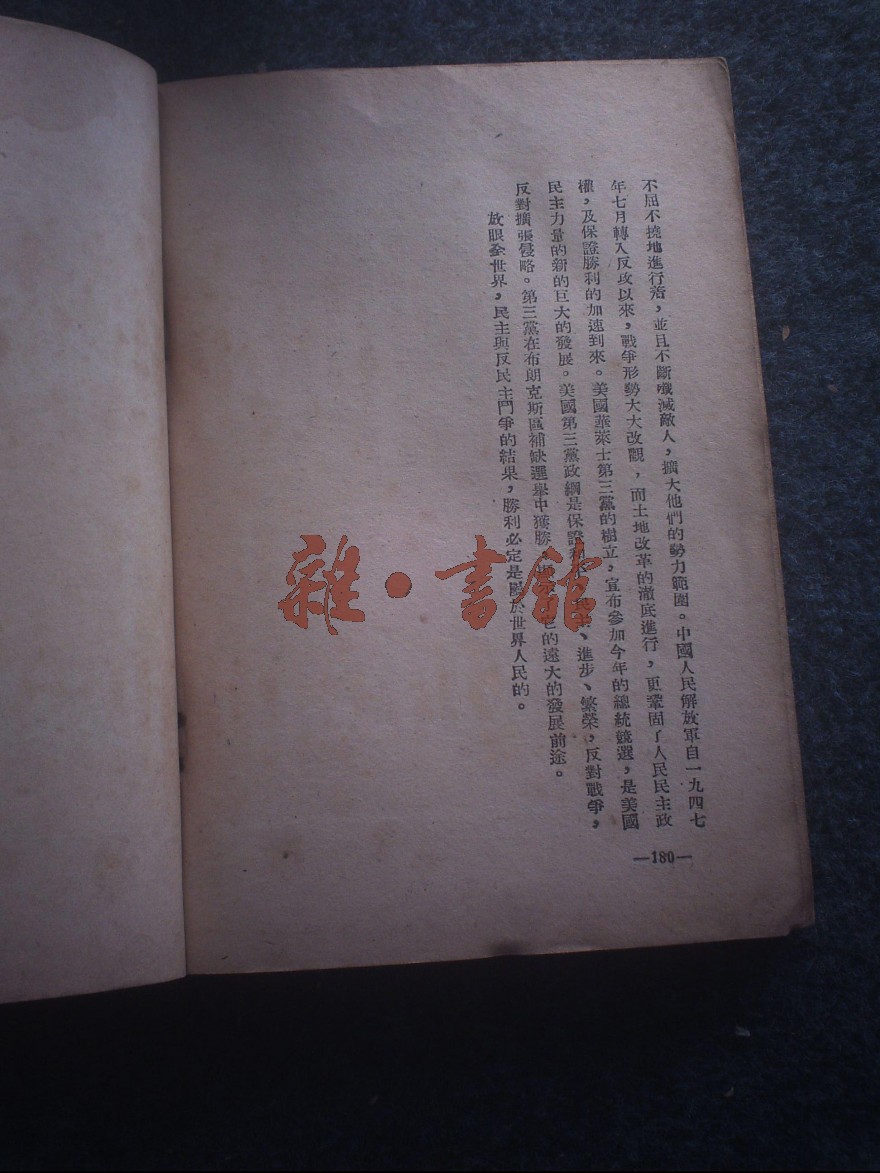 不屈不撓地進行着，並且不斷殲滅敵人，擴大他們的勢力範圍。中國人民解放軍自一九四七
年七月轉入反攻以來，戰爭形勢大大改觀，而土地改革的澈底進行，更鞏固了人民民主政
權，及保證勝利的加速到來。美國華萊士第三黨的樹立，宣布參加今年的總統競選，是美國
民主力量的新的巨大的發展。美國第三黨政綱是保證和平、民主、進步、繁榮，反對戰爭，
反對擴張侵略。第三黨在布朗克斯區補缺選舉中獲勝，它的遠大的發展前途。
放眼全世界，民主與反民主鬥爭的結果，勝利必定是屬於世界人民的。
—180—
雜·書館